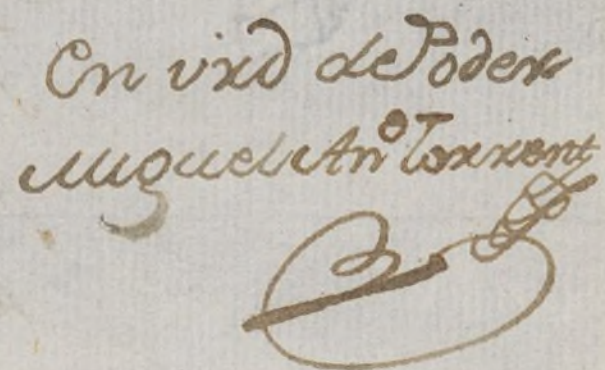 En vrd de Poder
Miguel Anº Torrent